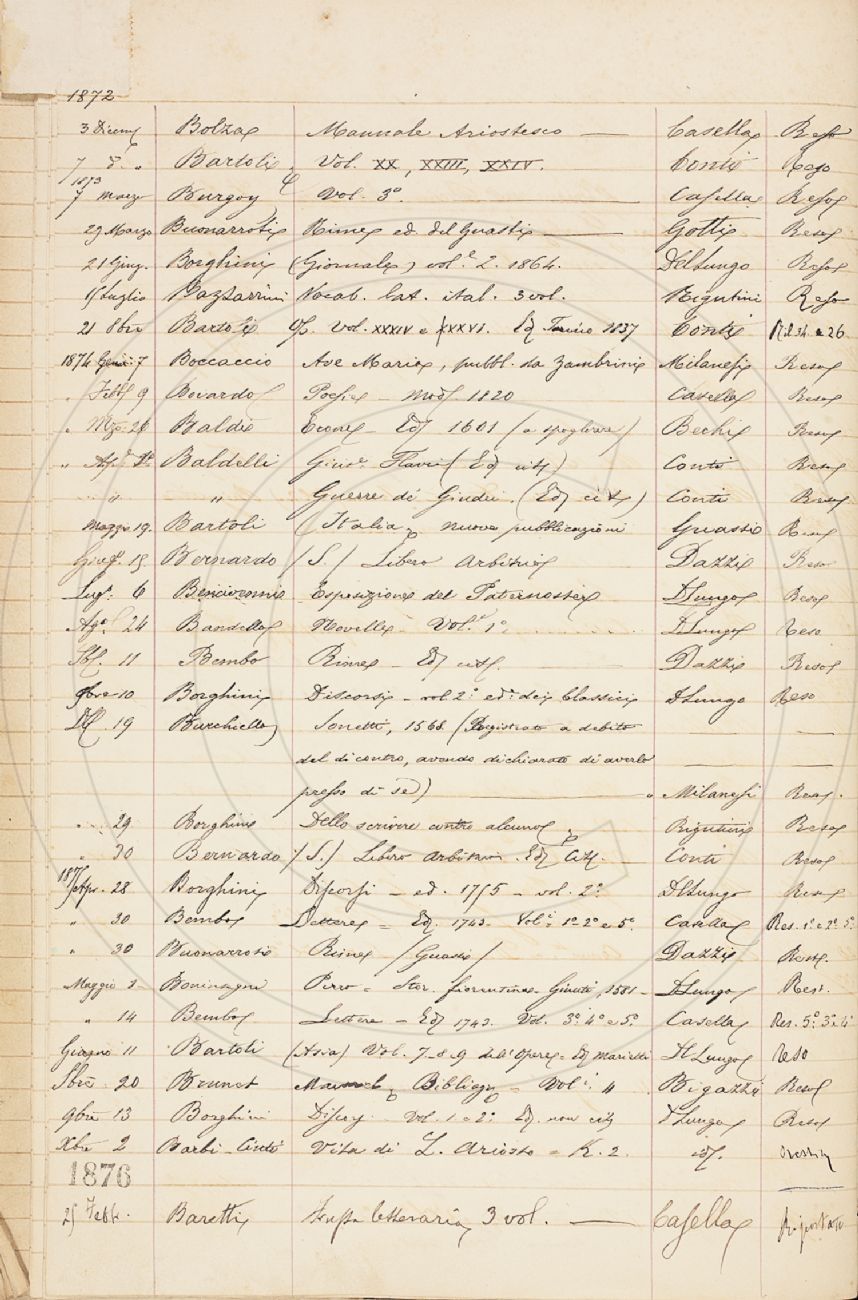 1872
3 Dicem Bolza Manuale Ariostesco — Casella Reso
7 D. " Bartoli Vol. XX, XXIII, XXIV. Conti Reso
1873
7 Marzo Burgoy Vol. 3° Casella Reso
29 Marzo Buonarroti Rime ed. del Guasti — Gotti Reso
21 Giug. Borghini (Giornale) vol. 2. 1864. Del Lungo Reso
15 Luglio Pazzarrini Vocab. lat. ital. 3 vol. Rigutini Reso
21 8bre Bartoli Op. Vol. XXXIV e XXXVI. Ed Torino 1837 Conti
1874 Gen: 7 Boccaccio Ave Maria, pubbl. da Zambrini Milanesi Reso
" Febb 9 Bovardo Poesie — Mod 1820 Casella Reso
" Mzo 26 Baldi — Ed 1601 (a spogliare) Bechi Reso
" Ap. Baldelli Gius. Flavi (Ed cit) Conti Reso
" " Guerre de' Giudei. (Ed cit) Conti Reso
Maggio 19. Bartoli (Italia) nuove pubblicazioni Guasti Reso
Giug. 15 Bernardo (S.) Libero Arbitrio Dazzi Reso
Lug. 6 Bencivenni Esposizione del Paternostro DLungo Reso
Ago. 24 Bandello Novelle Vol. 1° DLungo Reso
11 Bembo Rime — Ed cit. Dazzi Reso
9bre 10 Borghini Discorsi — vol 2° ed. dei Classici DLungo Reso
19 Burchiello Sonetti, 1568 (Registrato a debito
del di contro, avendo dichiarato di averlo
presso di sè) " Milanesi Reso.
" 29 Borghini Dello scrivere contro alcuno Rigutini Reso
" 30 Bernardo (S.) Libero Arbitrio. Ed Cit. — Conti Reso
1875
Apr. 28 Borghini Discorsi — ed. 1755 — vol. 2° DLungo Reso
" 30 Bembo Lettere = Ed. 1743. Vol. 1° 2° e 5°. Casella Res. 1° e 2° 5°
" 30 Buonarroti Rime (Guasti) Dazzi Reso.
Maggio 3 Boninsegni Piero = Stor. fiorentina. Giunti, 1581 — DLungo Res.
" 14 Bembo Lettere — Ed 1743. Vol. 3° 4° e 5°. Casella Res. 5° 3° 4°
Giugno 11 Bartoli (Asia) Vol. 7-8-9 dell'Opere = Ed Marietti DLungo Reso
20 Brunet Manuel Bibliog = Vol. 4 Bigazzi Reso
9bre 13 Borghini Discorsi Vol. 1 e 2° Ed. non cit DLungo Reso
Xbre 2 Barbi-Cinti Vita di L. Ariosto = K. 2. id.
1876
25 Febb. Baretti Frusta letteraria, 3 vol. — Casella Riportato